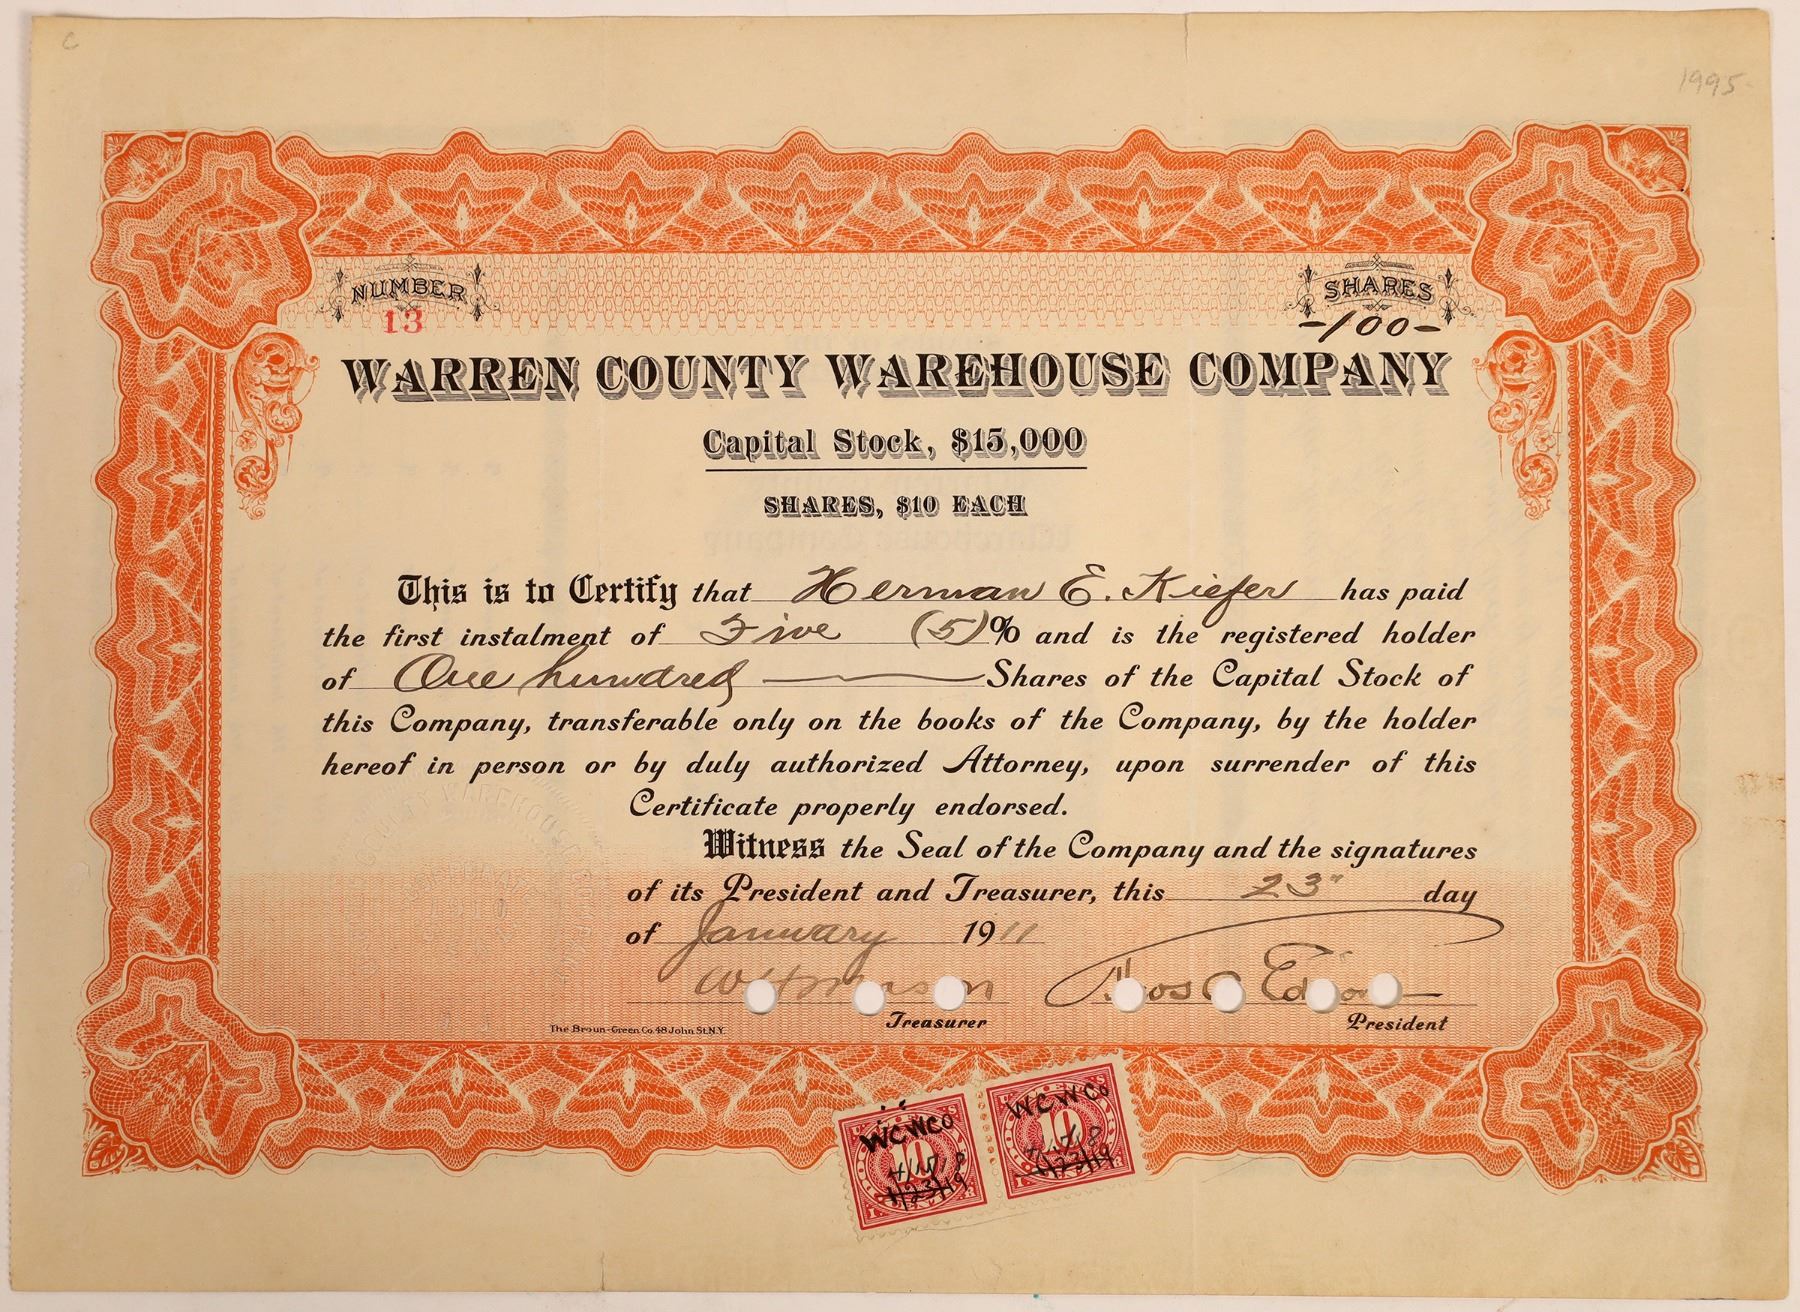 C
1995-
NUMBER
13
SHARES
-100-
WARREN COUNTY WAREHOUSE COMPANY
Capital Stock, $15,000
SHARES, $10 EACH
This is to Certify that Herman E. Kiefer has paid
the first instalment of Five (5)% and is the registered holder
of One hundred Shares of the Capital Stock of
this Company, transferable only on the books of the Company, by the holder
hereof in person or by duly authorized Attorney, upon surrender of this
Certificate properly endorsed.
Witness the Seal of the Company and the signatures
of its President and Treasurer, this 23" day
of January 1911
Thos A Edison
The Broun-Green Co. 48 John St. N.Y.
Treasurer
President
WCWCo
10
1/23/19
WCWCo
10
1/23/19